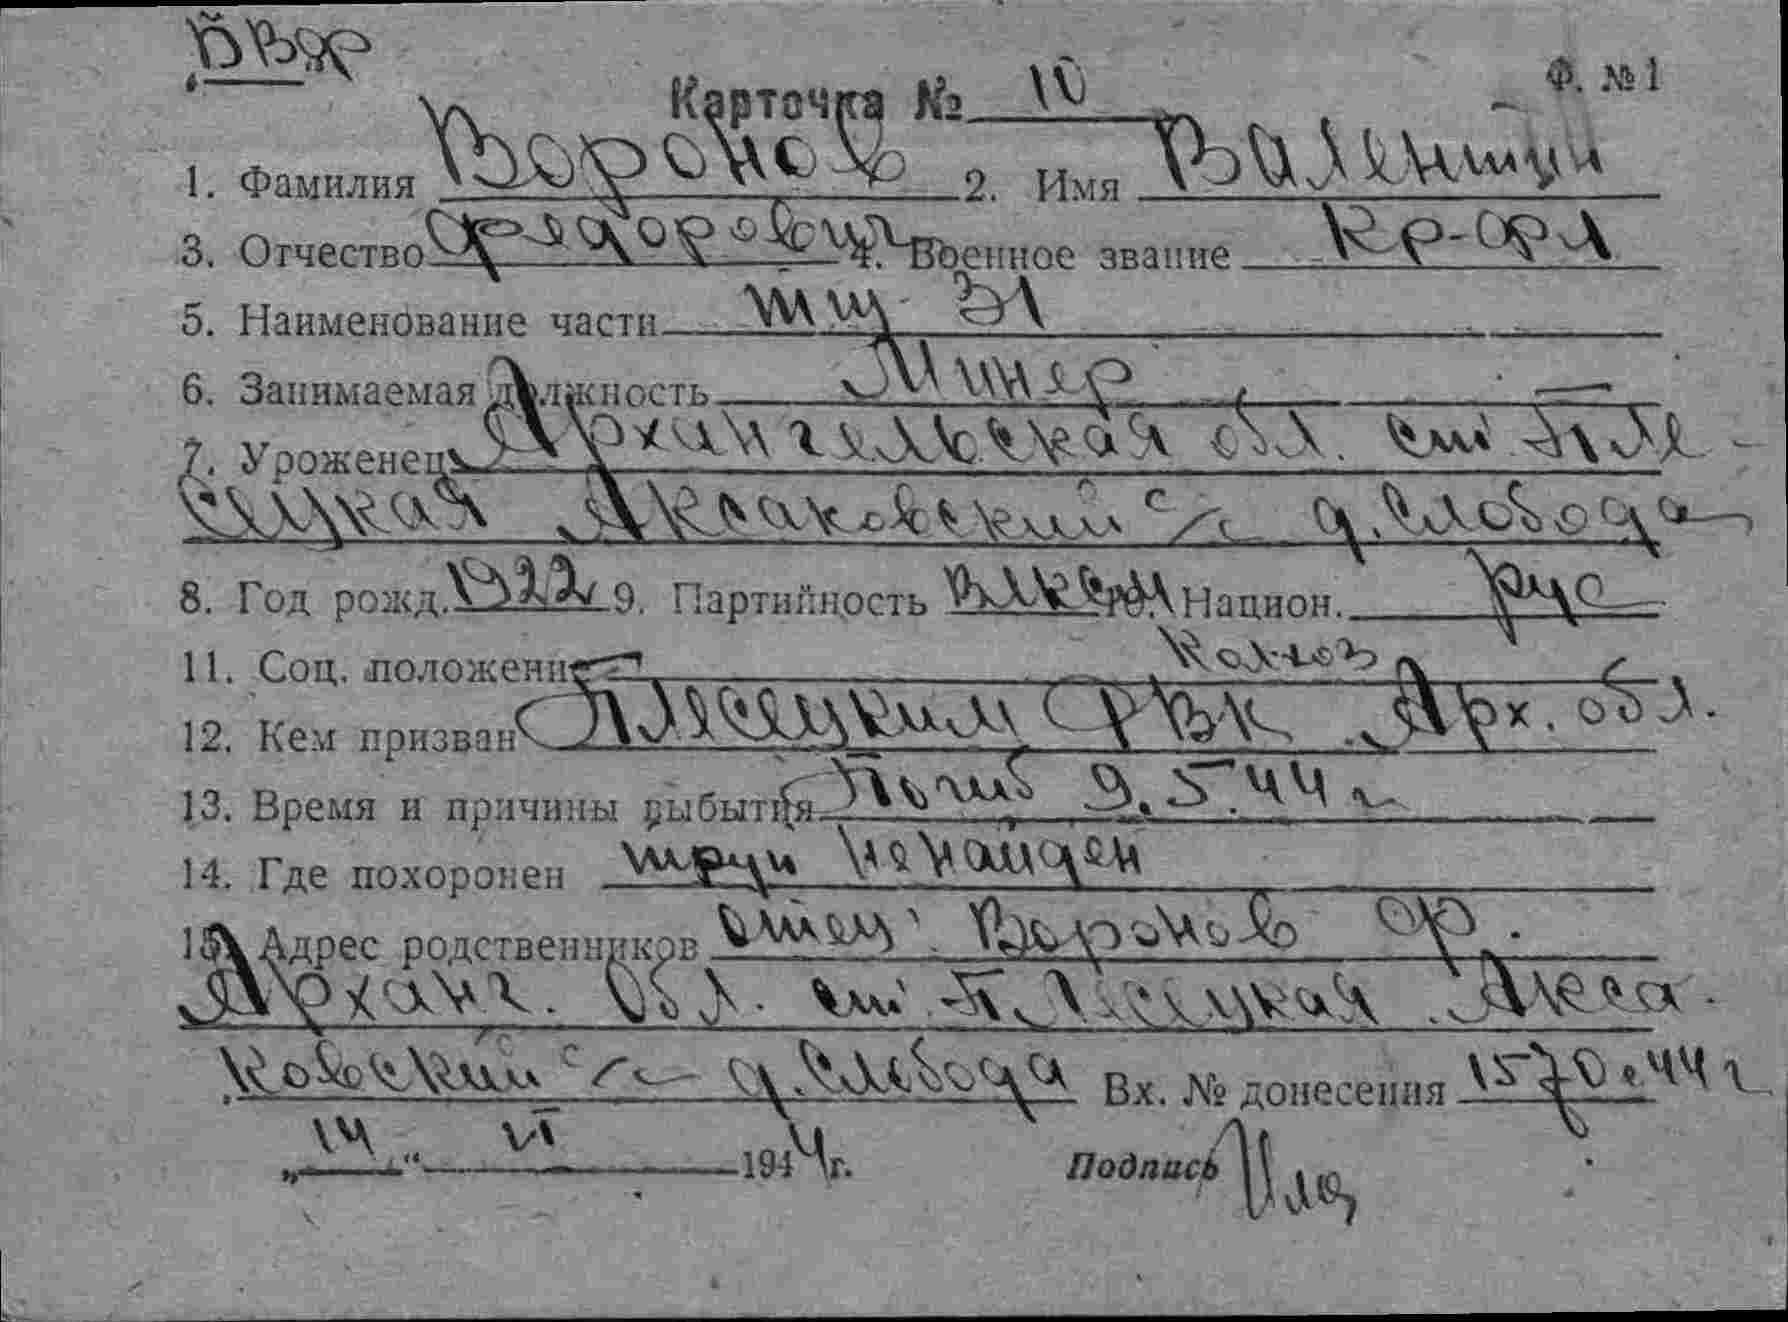 Ф. №1
Карточка № 10
1. Фамилия Воронов 2. Имя Валентин
3. Отчество Федорович 4. Военное звание Кр-фл
5. Наименование части тщ 31
6. Занимаемая должность Минер
7. Уроженец Архангельская обл. ст. Пле-
сецкая Аксаковский с/с д. Слобода
8. Год рожд. 1922 9. Партийность ВЛКСМ 10. Национ. рус
11. Соц. положение Колхоз
12. Кем призван Плесецким РВК Арх. обл.
13. Время и причины выбытия Погиб 9.5.44 г
14. Где похоронен труп не найден
15. Адрес родственников отец: Воронов Ф.
Арханг. обл. ст. Плесецкая Акса-
ковский с/с д. Слобода Вх. № донесения 1570с 44 г
„14“ VI 1944г. Подпись